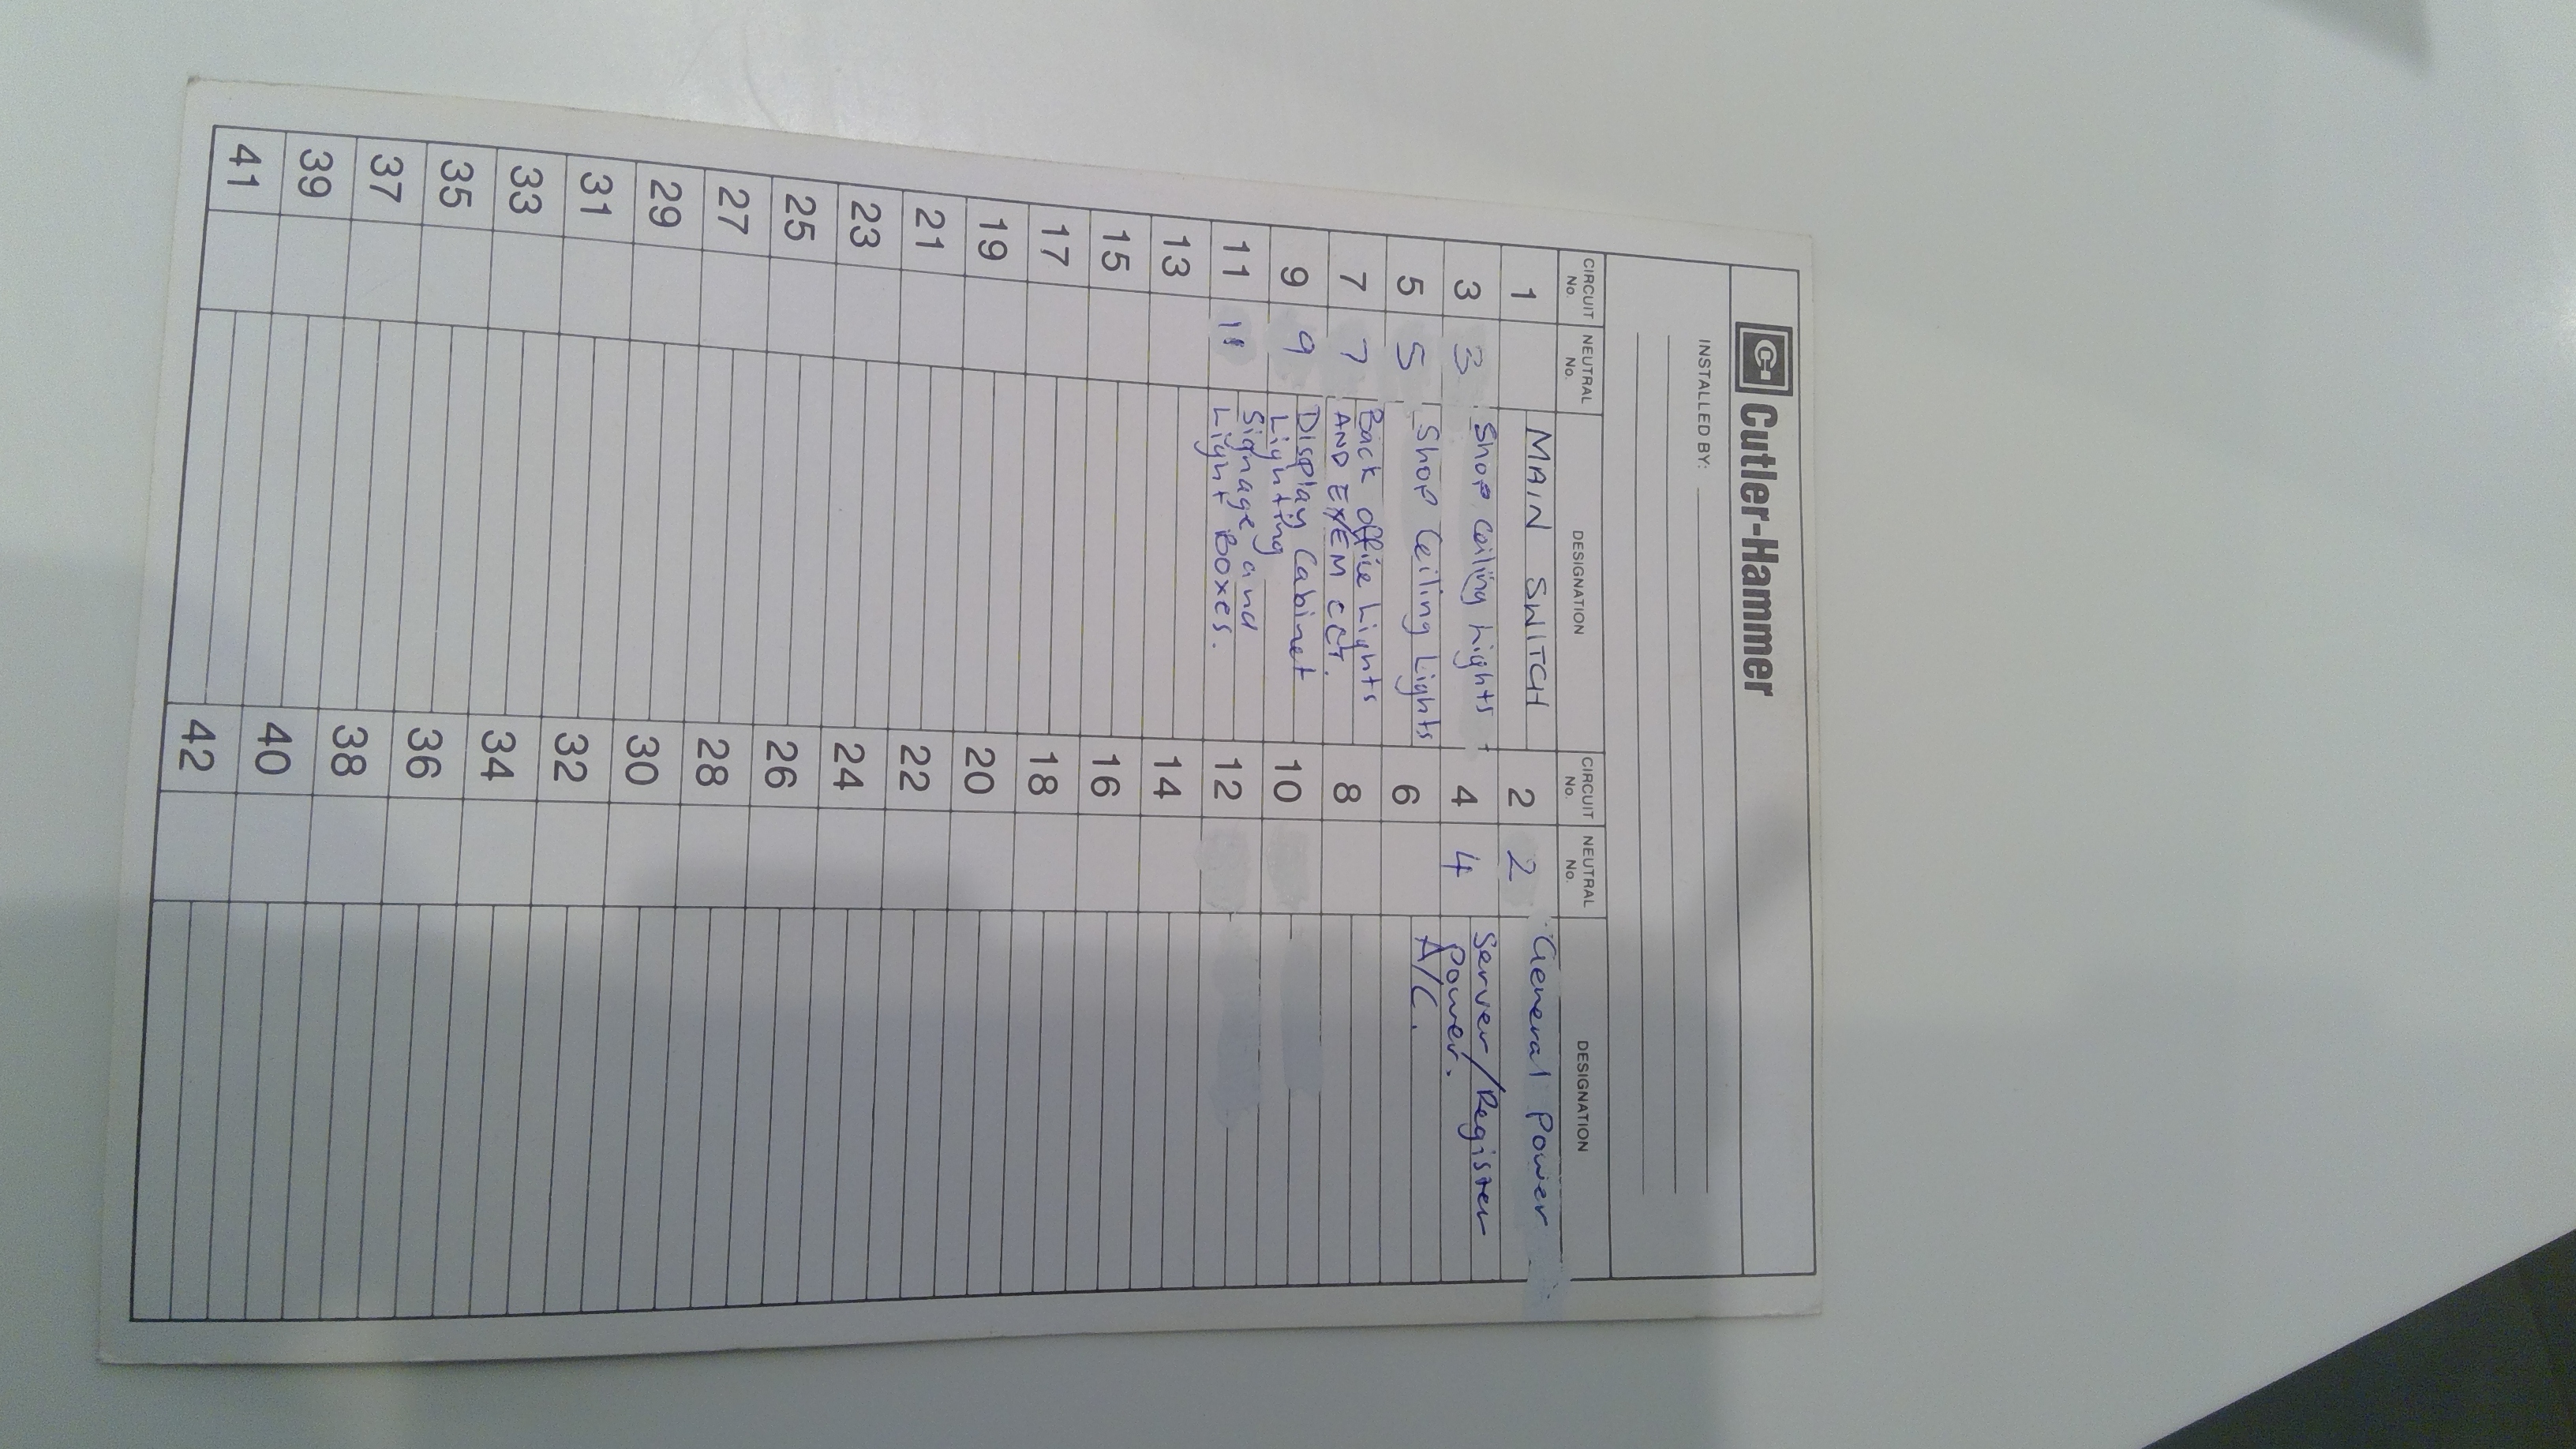 Cutler-Hammer
INSTALLED BY:
CIRCUIT No. NEUTRAL No. DESIGNATION CIRCUIT No. NEUTRAL No. DESIGNATION
1 MAIN SWITCH 2 2 General Power
3 3 Shop Ceiling Lights 4 4 Server/Register
Power.
5 5 Shop Ceiling Lights 6 A/C.
7 7 Back office Lights 8
AND EXEM CCT.
9 9 Display Cabinet 10
Lighting
11 11 Signage and 12
Light Boxes.
13 14
15 16
17 18
19 20
21 22
23 24
25 26
27 28
29 30
31 32
33 34
35 36
37 38
39 40
41 42